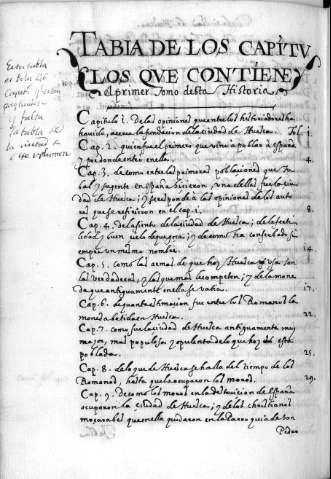 TABLA DE LOS CAPÍTV
LOS QVE CONTIENE
el primer tomo desta Historia.
Capitulo 1. De las opiniones que entre los historiadores ha
havido, acerca la fundacion de la ciudad de Huesca. Fol. 1.
Cap. 2. quien fue el primero que vino a poblar a españa
y por donde entro en ella. 4.
Cap. 3. de como entre las primeras poblaciones que Tu
bal y su gente en España hicieron, una dellas fue la ciu
dad de Huesca; y se responde a las opiniones de los auto
res que se refirieron en el cap. 1. 8.
Cap. 4. del sitio de la ciudad de Huesca; de la ferti
lidad y buen cielo que goza; y de como ha conserbado si
empre un mismo nombre. 14.
Cap. 5. como las armas de que hoy Huesca usa son
las verdaderas, y las que mas le competen; y de la mone
da que antiguamente en ella se vatia. 17.
Cap. 6. de quanta estimacion fue entre los Romanos la
moneda batida en Huesca. 22.
Cap. 7. como fue la ciudad de Huesca antiguamente muy
mayor, mas populosa y opulenta de lo que hoy esta
poblada. 25.
Cap. 8. de lo que de Huesca se halla del tiempo de los
Romanos, hasta que la ocuparon los moros.
Cap. 9. De como los moros en la destruicion de España
ocuparon la ciudad de Huesca; y de los christianos
moçarabes que en ella quedaron en la Parroquia de San
Pedro